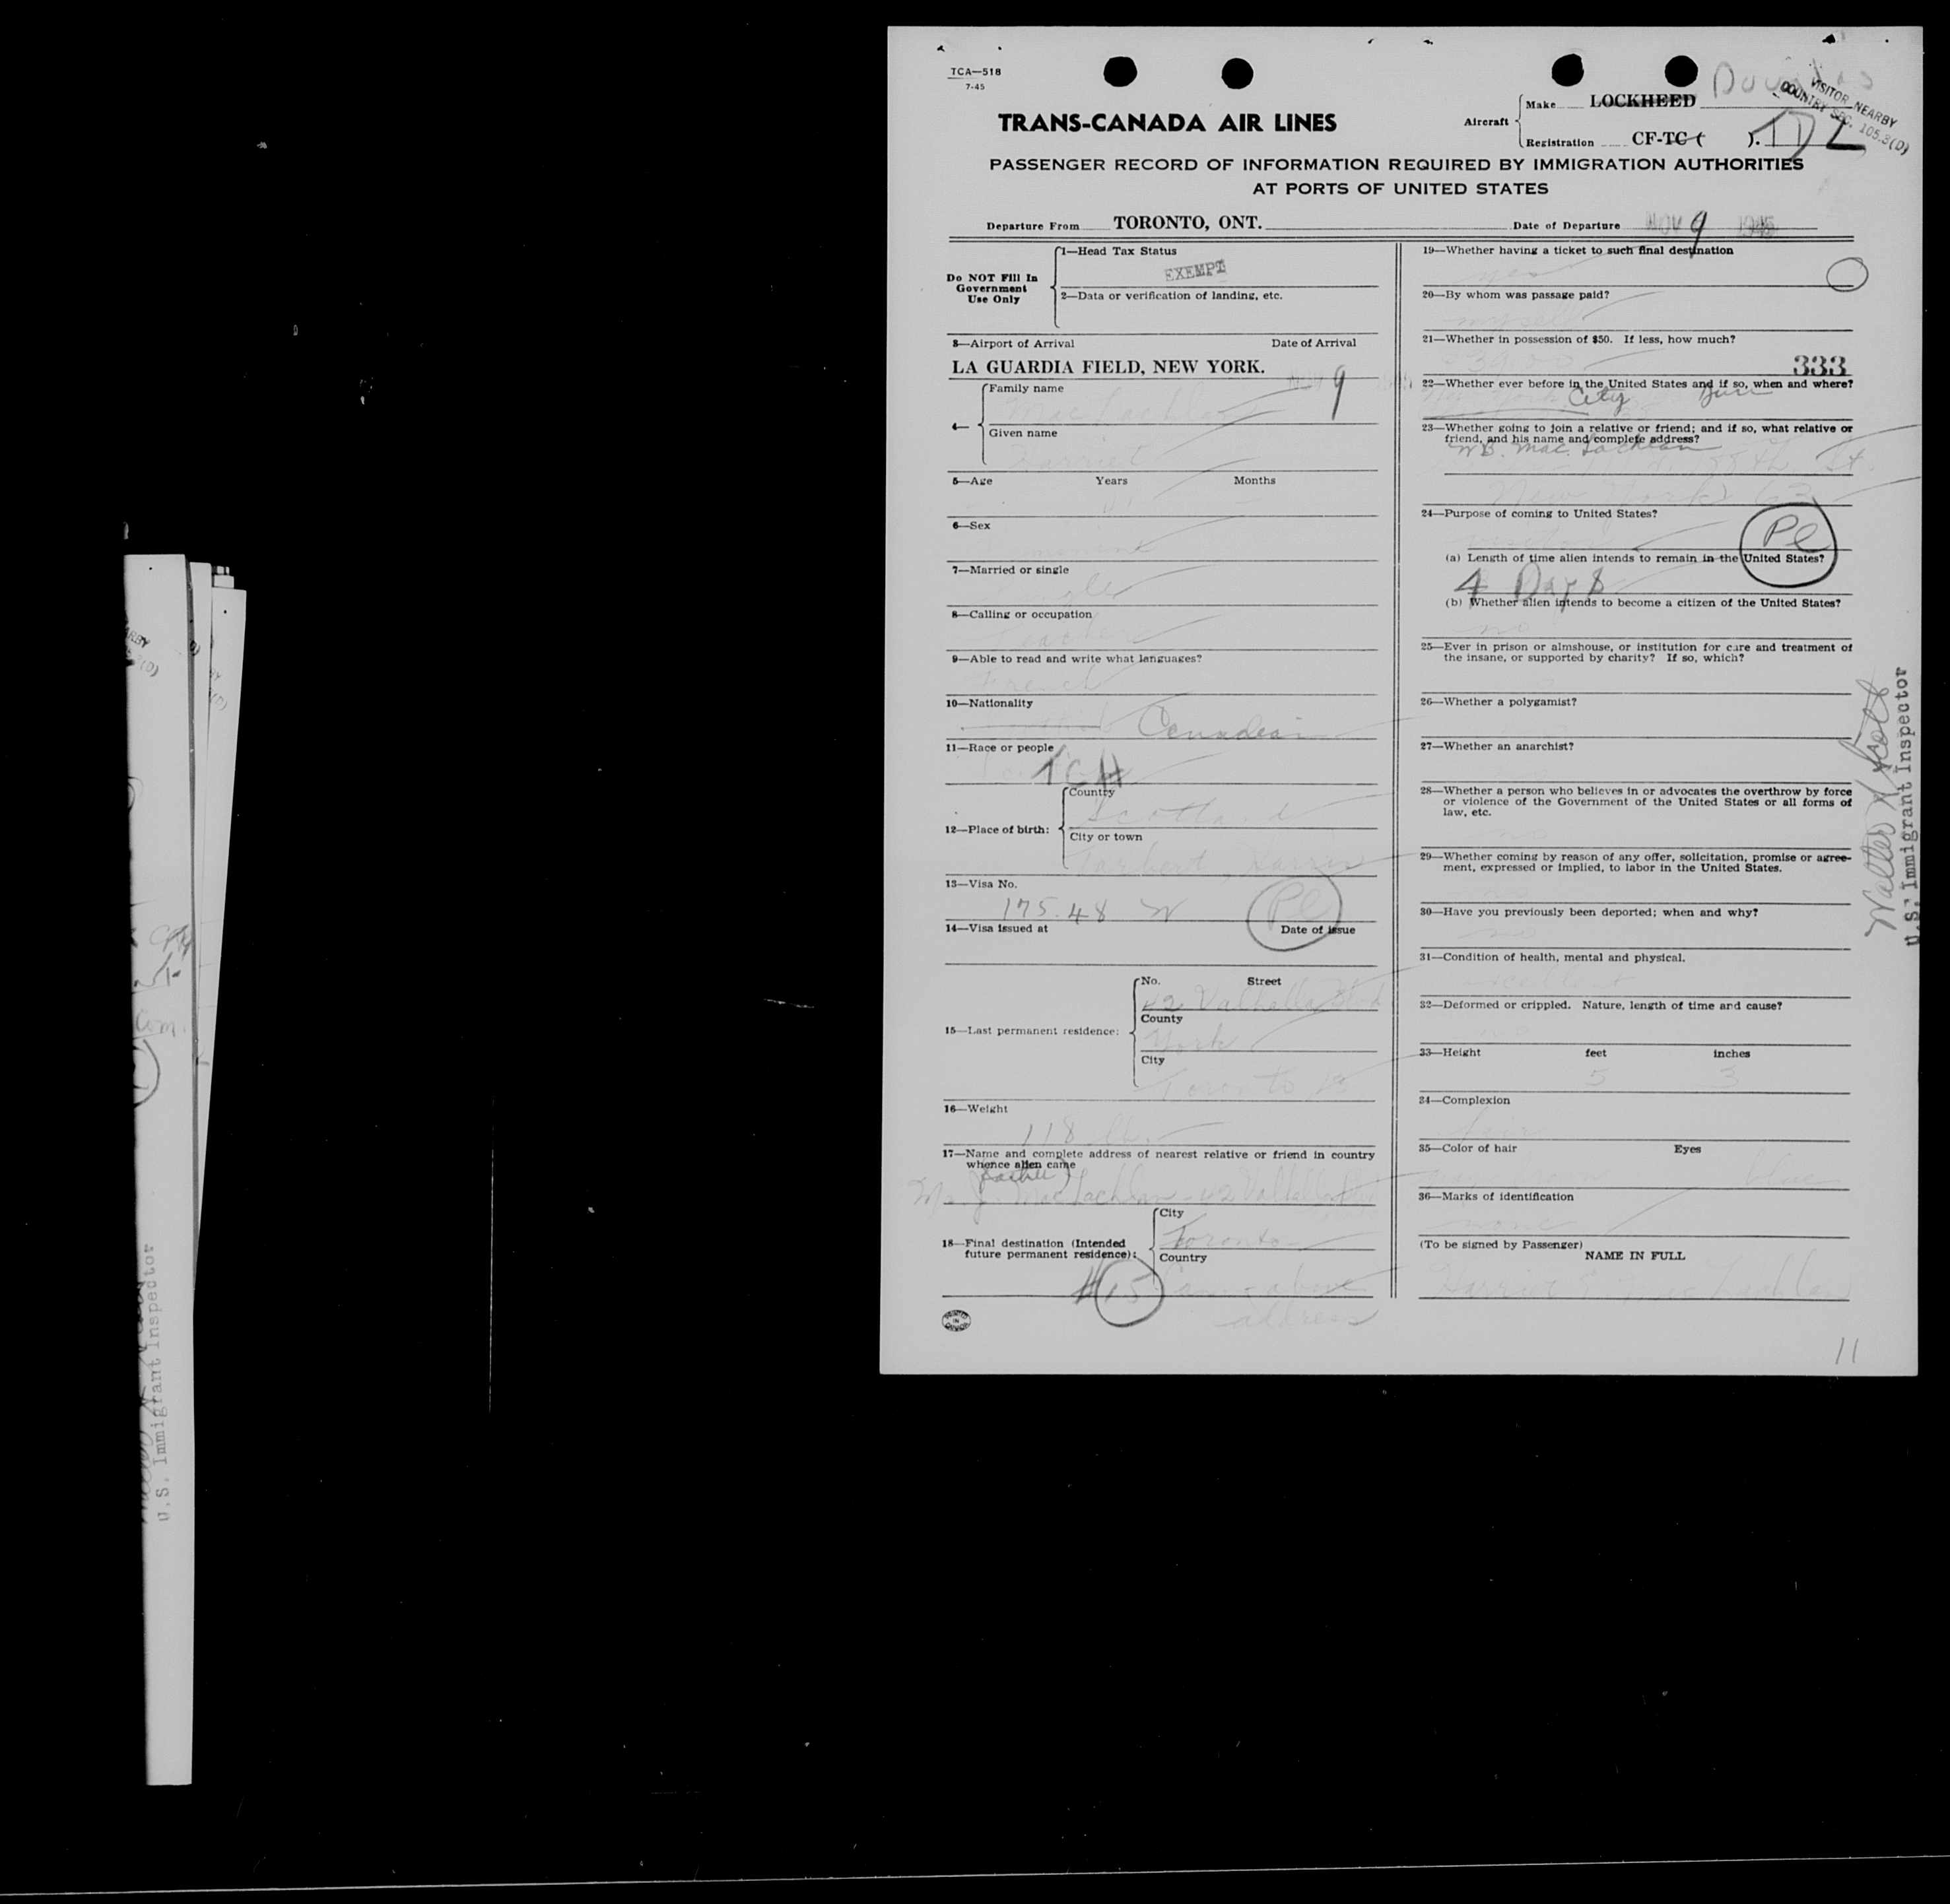 TCA—518
7-45
Douglas
VISITOR NEARBY
COUNTRY SEC. 105.3(D)
TRANS-CANADA AIR LINES
Aircraft
Make LOCKHEED
Registration CF-TC ( ). TDL
PASSENGER RECORD OF INFORMATION REQUIRED BY IMMIGRATION AUTHORITIES
AT PORTS OF UNITED STATES
Departure From TORONTO, ONT. Date of Departure NOV 9 1945
Do NOT Fill In
Government
Use Only
1—Head Tax Status
EXEMPT
2—Data or verification of landing, etc.
3—Airport of Arrival Date of Arrival
LA GUARDIA FIELD, NEW YORK. NOV 9
4—
Family name
MacLachlan
Given name
Harriet
5—Age Years Months
6—Sex
7—Married or single
single
8—Calling or occupation
teacher
9—Able to read and write what languages?
French
10—Nationality
Canadian
11—Race or people
12—Place of birth:
Country
Scotland
City or town
Tarbert, Harris
13—Visa No.
175.48 W
Pl
14—Visa issued at Date of issue
15—Last permanent residence:
No. Street
42 Valhalla Blvd
County
York
City
Toronto 13
16—Weight
118 lb.
17—Name and complete address of nearest relative or friend in country
whence alien came
(father)
Mr. J. MacLachlan - 42 Valhalla Blvd
18—Final destination (Intended
future permanent residence):
City
Toronto
Country
#15 Same above
address
PRINTED
IN
CANADA
19—Whether having a ticket to such final destination
yes
20—By whom was passage paid?
myself
21—Whether in possession of $50. If less, how much?
333
22—Whether ever before in the United States and if so, when and where?
New York City
23—Whether going to join a relative or friend; and if so, what relative or
friend, and his name and complete address?
W B. MacLachlan
St.
New York 63
24—Purpose of coming to United States?
Pl
(a) Length of time alien intends to remain in the United States?
4 Days
(b) Whether alien intends to become a citizen of the United States?
no
25—Ever in prison or almshouse, or institution for care and treatment of
the insane, or supported by charity? If so, which?
26—Whether a polygamist?
27—Whether an anarchist?
28—Whether a person who believes in or advocates the overthrow by force
or violence of the Government of the United States or all forms of
law, etc.
no
29—Whether coming by reason of any offer, solicitation, promise or agree-
ment, expressed or implied, to labor in the United States.
no
30—Have you previously been deported; when and why?
no
31—Condition of health, mental and physical.
excellent
32—Deformed or crippled. Nature, length of time and cause?
no
33—Height feet inches
5 3
34—Complexion
fair
35—Color of hair Eyes
blue
36—Marks of identification
none
(To be signed by Passenger)
NAME IN FULL
Harriet E. MacLachlan
11
Walter N Scott
U.S. Immigrant Inspector
U.S. Immigrant Inspector